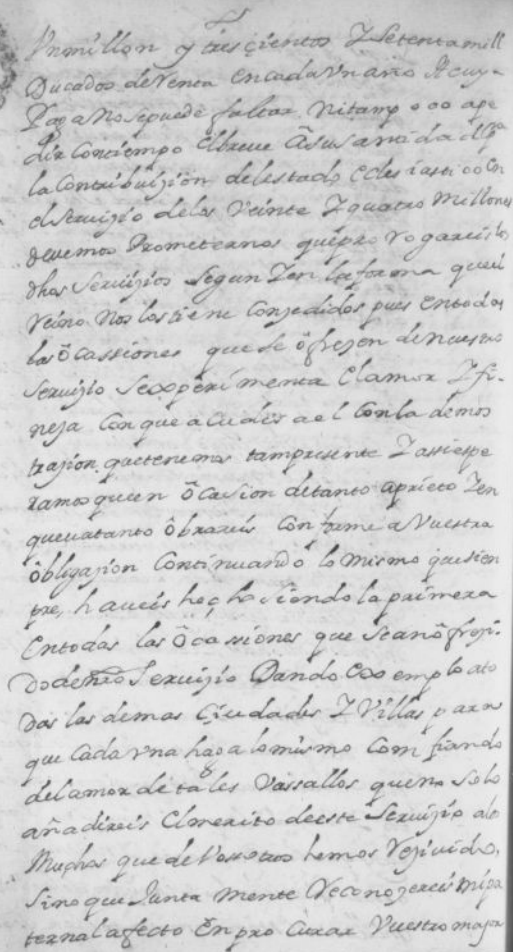 Un millon y trescientos Z Setenta mill
Ducados de Renta en cada un año A cuya
Paga no se puede faltar Ni tampoco ape
dir Con tiempo el breve a su santidad pa
la Contribuijion del estado eclesiastico en
el Servijio de los Veinte Z quatro Millones
devemos Prometernos que prorogareis los
dhos Servijios Segun Z en la forma que el
Reino Nos los tiene Conjedidos pues en todas
las ôcassiones que se ôfrejen de nuestro
Servijio Se experimenta el amor Z fi-
neja Con que acudis a el Con la demos
trajion que tenemos tam presente Z assi espe
ramos que en ôcasion de tanto aprieto Z en
que va tanto ôbrareis Conforme a Vuestra
ôbligajion Continuando lo mismo que siem
pre, haveis hecho Siendo la primera
en todas las ôcassiones que se an ôfreji-
do de nro Servijio Dando exemplo a to
das las demas Ciudades Z Villas para
que Cada una haga lo mismo Comfiando
del amor de tales Vassallos que no solo
añadireis el merito de este Servijio a los
Muchos que de Vosotros hemos Rejivido,
Sino que Junta mente Reconojereis mi pa
ternal afecto en procurar Vuestro major